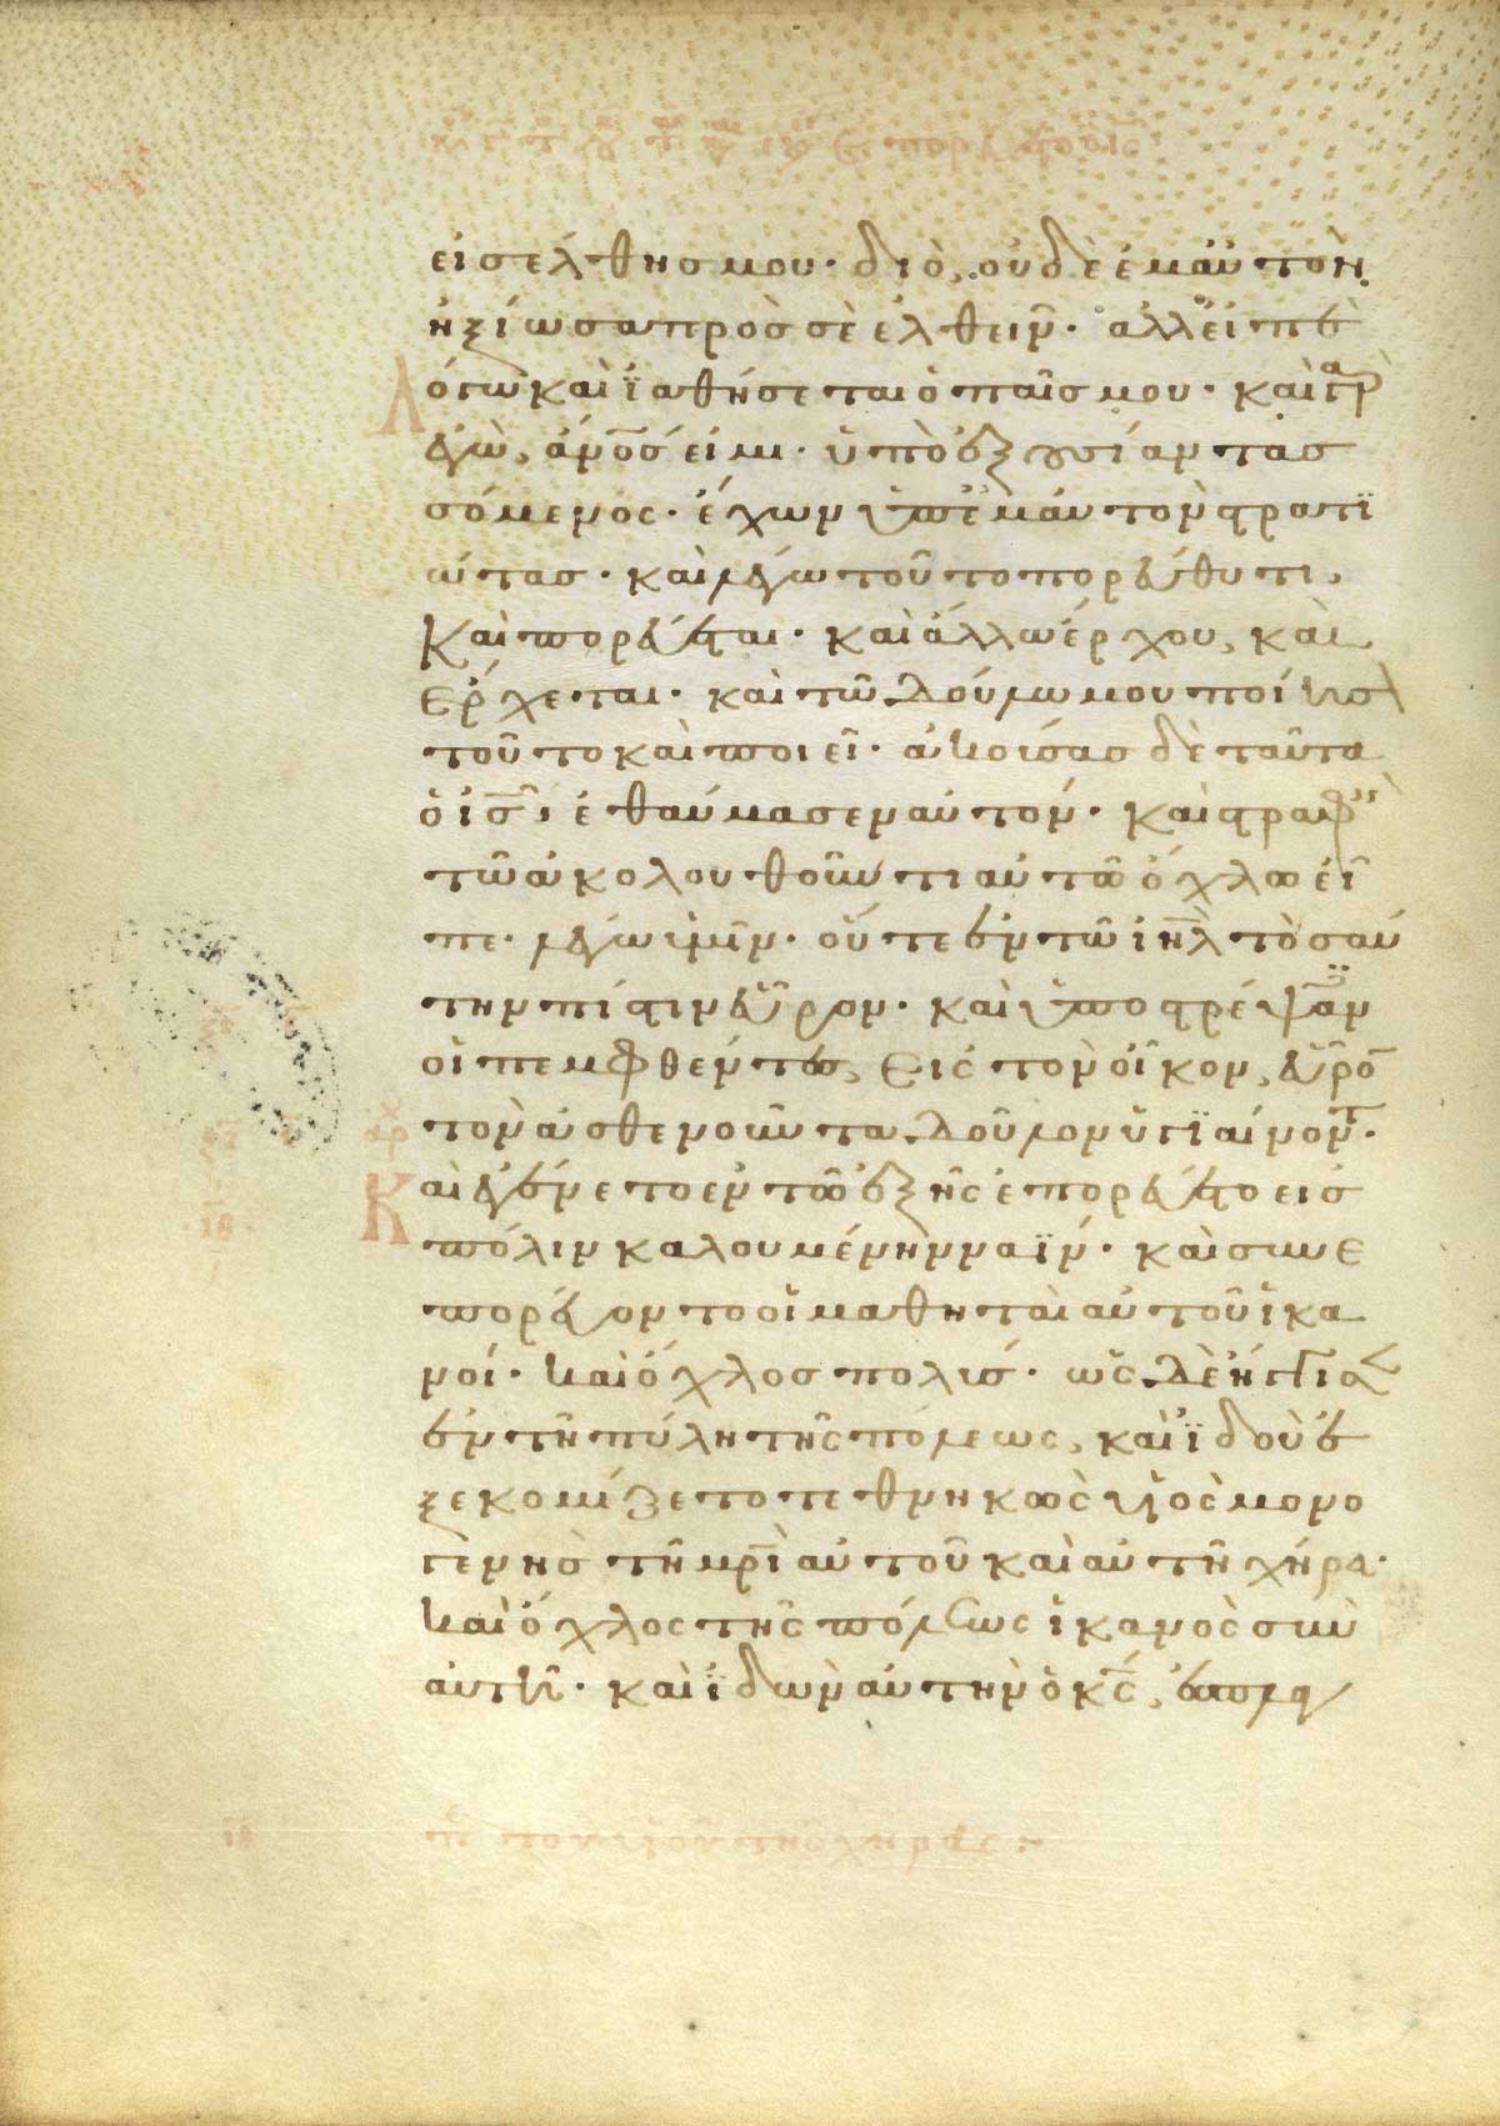 εἰσέλθης μου· διὸ, οὐδὲ ἐμαὐτὸν
ἠξίωσα πρὸς σὲ ἐλθεῖν· ἀλλ εἰπὲ
λόγω καὶ ἰαθήσεται ὁ παῖς μου· καὶ γὰρ
ἐγὼ, ἄνος εἰμι ὑπὸ ἐξουσίαν τασ
σόμενος· ἔχων ὑπ ἐμαυτὸν στρατϊ
ώτας· καὶ λέγω τούτο πορεύθητι,
καὶ πορεύεται· καὶ ἄλλω ἔρχου, καὶ
ἔρχεται· καὶ τῶ δούλω μου ποίησον
τοῦτο καὶ ποιεῖ· ἀκούσας δὲ ταῦτα
ὁ ις ἐθαύμασεν αὐτόν· καὶ στραφεὶς
τῶ ἀκολουθοῦντι αὐτῶ ὄχλω εἶ
πε· λέγω ὑμῖν· οὔτε ἐν τῶ ιηλ τοσαύ
την πίστιν εὗρον· καὶ ὑποστρέψαντες
οἱ πεμφθέντες, εἰς τὸν οἶκον, εὗρον
τὸν ἀσθενοῦντα δοῦλον ὑγϊαίνοντα·
Καὶ ἐγένετο ἐν τῶ ἑξῆς ἐπορεύετο εἰς
πόλιν καλουμένην ναϊν· καὶ συνε
πορεύοντο οἱ μαθηταὶ αὐτοῦ ἱκα
νοί· καὶ ὄχλος πολύς· ὡς δὲ ἤγγισαν
ἐν τῆ πύλη τῆς πόλεως, καὶ ἰδοὺ ἐ
ξεκομίζετο τεθνηκὼς υἱὸς μονο
γενὴς τῆ μρὶ αὐτοῦ καὶ αὐτῆ χήρα·
καὶ ὄχλος τῆς πόλεως ἱκανὸς σὺν
αὐτῆ· καὶ ἰδὼν αὐτὴν ὁ κς,